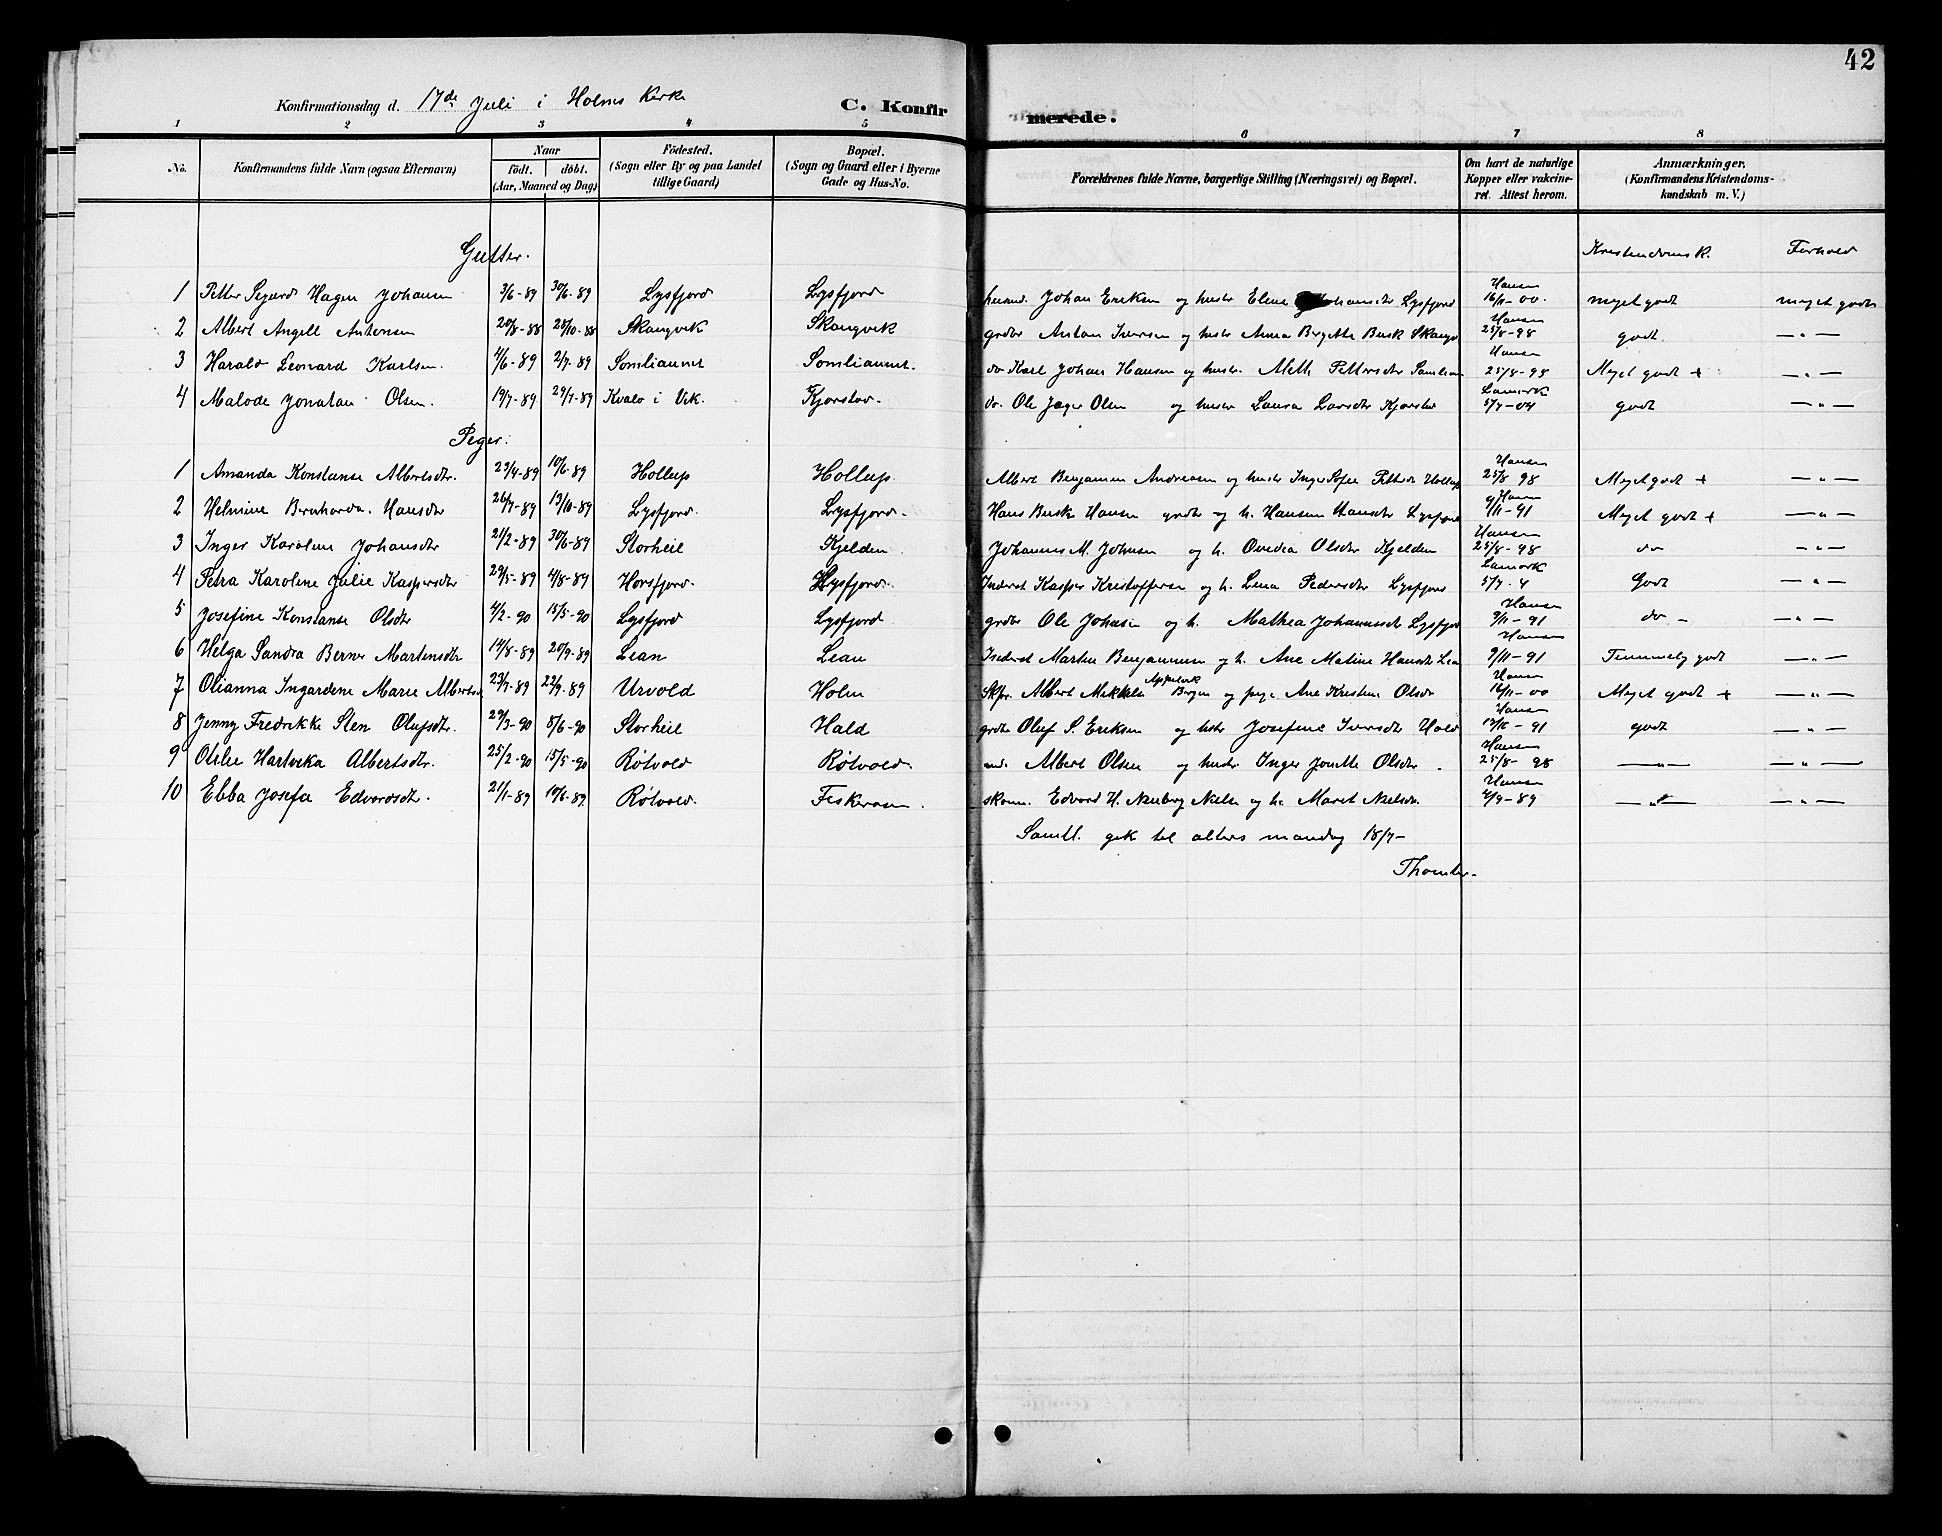 42
Konfirmationsdag d. 17de Juli i Holms Kirke C. Konfirmerede.
1 2 3 4 5 6 7 8
No. Konfirmandens fulde Navn (ogsaa Efternavn) Naar født. døbt. (Aar, Maaned og Dag) Fødested. (Sogn eller By og paa Landet tillige Gaard) Bopæl. (Sogn og Gaard eller i Byerne Gade og Hus-No. Forældrenes fulde Navne, borgerlige Stilling (Næringsvei) og Bopæl. Om havt de naturlige Kopper eller vakcineret. Attest herom. Anmærkninger. (Konfirmandens Kristendomskundskab m. V.)
Gutter. Kristendomsk. Forhold
1 Petter Sigurd Hagen Johansen 3/6-89 30/6-89 Lysfjord Lysfjord Johan Eriksen og hustr Eline Johansdtr Lysfjord Hansen 16/11-00. meget godt meget godt
2 Albert Angell Antonsen 20/8-88 28/10-88 Skangvik Skangvik grdbr Anton Iversen og hustr Anna Birgitte Busk Skangv Hansen 25/8-98 godt — „ —
3 Harald Leonard Karlsen 4/6-89 2/7-89 Somliaunet Somliaunet. do Karl Johan Hansen og hustr. Meth Pettersdtr Somliaun Hansen 25/8-98 Meget godt + — „ —
4 Malode Jonatan Olsen. 19/7-89 29/7-89 Kvalø i Vik. Kjørstav. do. Ole Jæger Olsen og hustr Laura Larsdtr Kjørstav Lamork 5/7-04 godt — „ —
Piger.
1 Amanda Konstanse Albertsdtr. 23/4-89 10/6-89 Hollup Hollup. Albert Benjamin Andreasen og hustr Inger Sofie Pettersd Hollup Hansen 25/8 98 Meget godt + — „ —
2 Helmine Bernharda Hansdtr 26/7-89 13/10-89 Lysfjord. Lysfjord. Hans Busk Hansen grdbr og h. Hansine Hansdtr Lysfjord Hansen 9/11-91 Meget godt + — „ —
3 Inger Karoline Johansdtr 21/2-89 30/6-89 Storheil Kjelden Johannes M. Johnsen og h. Ovedia Olsdtr Kjelden Hansen 25/8-98 do — „ —
4 Petra Karoline Julie Kaspersdtr 29/5-89 4/8-89 Horsfjord. Lysfjord. Inderst Kasper Kristoffersen og h. Lena Pedersdtr Lysfjord Lamork 5/7-4 Godt — „ —
5 Josefine Konstanse Olsdtr 4/2-90 15/5-90 Lysfjord Lysfjord grdbr Ole Johnsen og h. Mathea Johannesdtr Lysfjord Hansen 9/11-91 do - — „ —
6 Helga Sandra Berner Martinsdtr 14/8-89 20/9-89 Lian Lian Inderst Martin Benjaminsen og h. Ane Matine Hansdtr Lian Hansen 9/11-91 Temmelig godt — „ —
7 Olianna Ingardene Marie Albertsd 23/7-89 22/9-89 Urvold Holm Albert Mikkelsen Bogen og pige Ane Kristine Olsdr Hansen 16/11-00 Meget godt + — „ —
8 Jenny Fredrikke Sten Olufsdtr. 29/3-90 8/6-90 Storheil Hald grdbr Oluf S. Eriksen og hstr Josefine Iversdtr Hald Hansen 12/11-91 godt — „ —
9 Otilie Hartvika Albertsdtr. 25/2-90 15/5-90 Røtvold Røtvold. Albert Olsen og hustr Inger Jonette Olsdtr Hansen 25/8-98 — „ — — „ —
10 Ebba Josefa Edvardsdtr. 21/1-89 10/6-89 Røtvold. Fiskerosen. Edvard H. Nielsen og h. Maret Nielsdr. Hansen 4/9-89 — „ — — „ —
Samtl. gik til alters mandag 18/7-